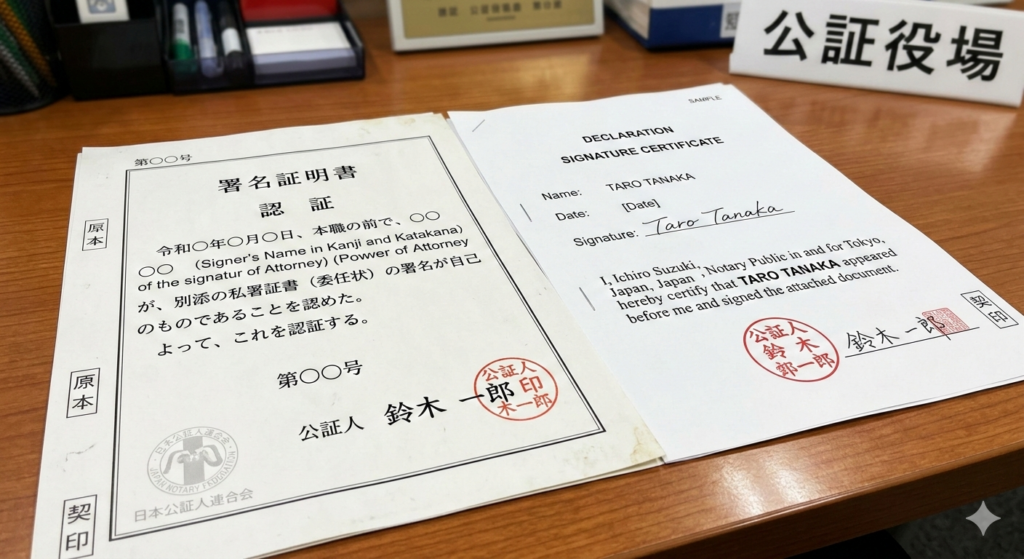 公証役場
第〇〇号
署名証明書
認証
令和〇年〇月〇日、本職の前で、〇〇
〇〇 (Signer's Name in Kanji and Katakana)
of the signatur of Attorney) (Power of Attorney
が、別添の私署証書(委任状)の署名が自己
のものであることを認めた。
よって、これを認証する。
第〇〇号
公証人 鈴木 一郎
公証人
印
木一郎
原本
原本
契印
日本公証人連合会
JAPAN NOTARY
日本公証人連合会
SAMPLE
DECLARATION
SIGNATURE CERTIFICATE
Name: TARO TANAKA
Date: [Date]
Signature: Taro Tanaka
I, Ichiro Suzuki,
Japan, Japan , Notary Public in and for Tokyo,
hereby certify that TARO TANAKA appeared
before me and signed the attached document.
公証人
鈴木
一郎
鈴木一郎
契印